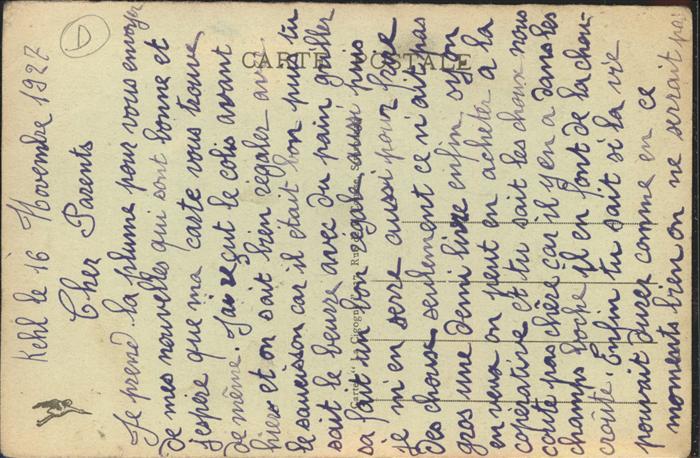 Kehl le 16 Novembre 1927
D
Cher Parents
Je prend la plume pour vous envoyer
de mes nouvelles qui sont bonne et
j'espère que ma carte vous trouve
de même. J'ai reçut le colis avant
hier et on sait bien régaler avec
le saucisson car il était bon puis tu
sait le beurre avec du pain griller
sa fait un bon régale aussi puis
je m'en serre aussi pour frire
des choux seulement ce n'ait pas
gros une demi livre enfin si on
en veux on peut en acheter a la
copérative et tu sait les choux nous
coute pas chère car il y en a dans les
champs boche il en font de la chou-
croûte. Enfin tu sait si la vie
pouvait durer comme en ce
moments bien on ne serrait pas
CARTE POSTALE